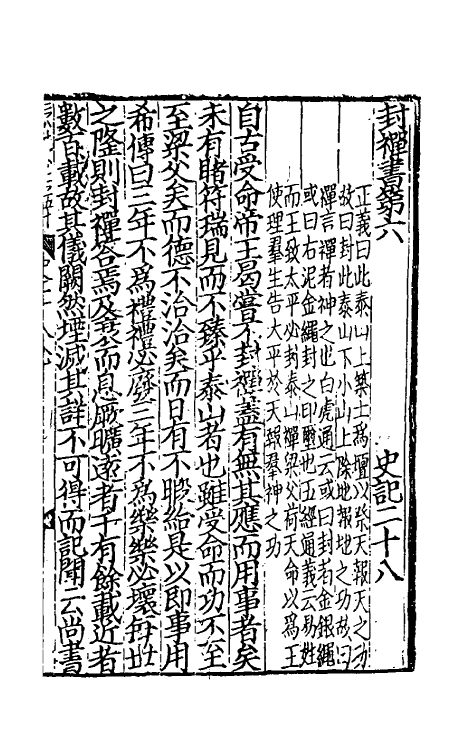 封禪書第六　史記二十八
正義曰此泰山上築土爲壇以祭天報天之功
故曰封此泰山下小山上除地報地之功故曰
禪言禪者神之也白虎通云或曰封者金銀繩
或曰石泥金繩封之印璽也五經通義云易姓
而王致太平必封泰山禪梁父荷天命以爲王
使理羣生告太平於天報羣神之功
自古受命帝王曷嘗不封禪蓋有無其應而用事者矣
未有睹符瑞見而不臻乎泰山者也雖受命而功不至
至梁父矣而德不洽洽矣而日有不暇給是以即事用
希傳曰三年不爲禮禮必廢三年不爲樂樂必壞每世
之隆則封禪答焉及衰而息厥曠遠者千有餘載近者
數百載故其儀闕然堙滅其詳不可得而記聞云尚書